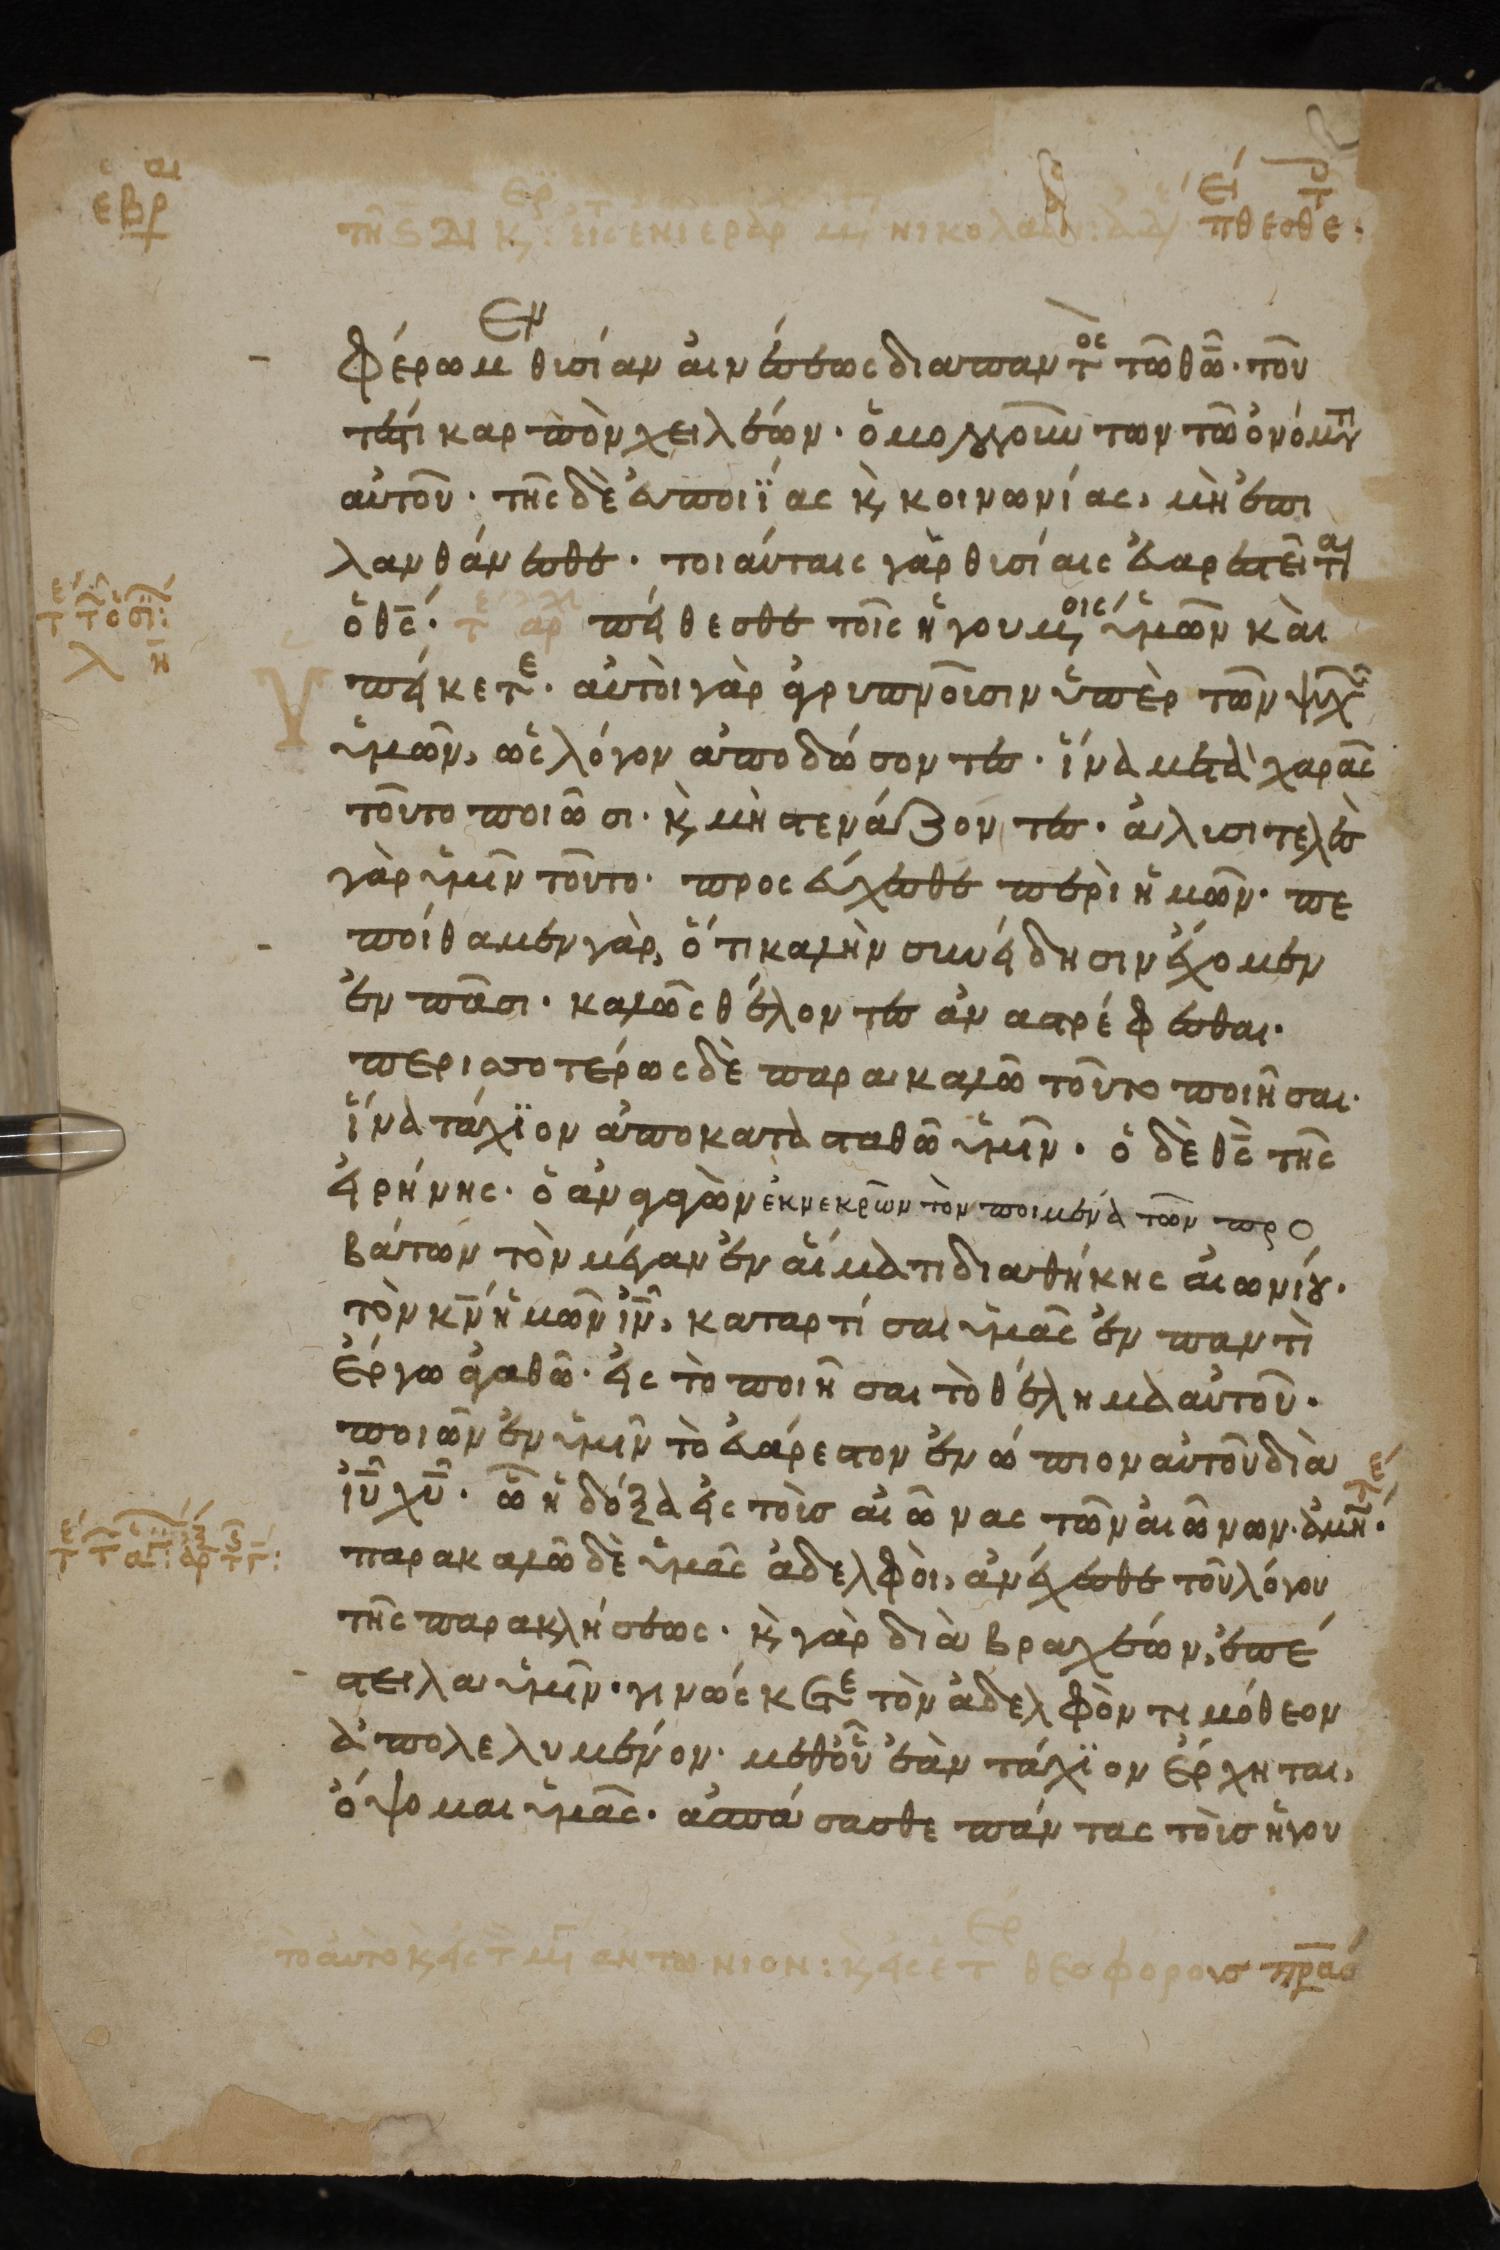 εβρ
πθεσθε·
φέρωμεν θισίαν αινέσεως διαπαντος τῶ θω̅· τοῦ
τέστι καρπὸν χειλέων· ὁμολογοῦντων τῶ ὀνόματι
αὐτοῦ· τῆς δὲ εὐποιΐας κ κοινωνίας, μὴ ἐπι
λανθάνεσθε· τοιαύταις γὰρ θισίαις εὐαρεστεῖται
ὁ θς̅· πείθεσθε τοῖς ἡγουμένοις ὑμῶν καὶ
ὑπείκετε· αὐτοὶ γὰρ ἀγρυπνοῦσιν ὑπὲρ τῶν ψυχῶν
ὑμῶν, ὡς λόγον ἀποδώσοντες· ἵνα μετὰ χαρᾶς
τοῦτο ποιῶσι· κ μὴ στενάζοντες· ἀλυσιτελὲς
γὰρ ὑμῖν τοῦτο· προσεύχεσθε περὶ ἡμῶν· πε
ποίθαμεν γὰρ, ὅτι καλὴν συνείδησιν ἔχομεν
ἐν πᾶσι· καλῶς θέλοντες ἀναστρέφεσθαι·
περισσοτέρως δὲ παρακαλῶ τοῦτο ποιῆσαι·
ἵνα τάχϊον ἀποκατασταθῶ ὑμῖν· ὁ δὲ θς̅ τῆς
εἰρήνης· ὁ ἀναγαγὼν ἐκ νεκρῶν τὸν ποιμένα τῶν προ
βάτων τὸν μέγαν ἐν αἵματι διαθήκης αἰωνίου·
τὸν κν̅ ἡμῶν ιν̅, καταρτίσαι ὑμᾶς ἐν παντὶ
ἔργω ἀγαθῶ· εἰς τὸ ποιῆσαι τὸ θέλημα αὐτοῦ·
ποιῶν ἐν ὑμῖν τὸ εὐάρεστον ἐνώπιον αὐτοῦ διὰ
ιυ̅ χυ̅· ὧ ἡ δόξα εἰς τοὺς αἰῶνας τῶν αἰώνων· ἀμήν·
παρακαλῶ δὲ ὑμᾶς ἀδελφοὶ, ἀνέχεσθε τοῦ λόγου
τῆς παρακλήσεως· κ γὰρ διὰ βραχέων, ἐπέ
στειλα ὑμῖν· γινώσκετε τὸν ἀδελφὸν τιμόθεον
ἀπολελυμένον· μεθοῦ ἐὰν τάχϊον ἔρχηται,
ὄψομαι ὑμᾶς· ἀσπάσασθε πάντας τοὺς ἡγου